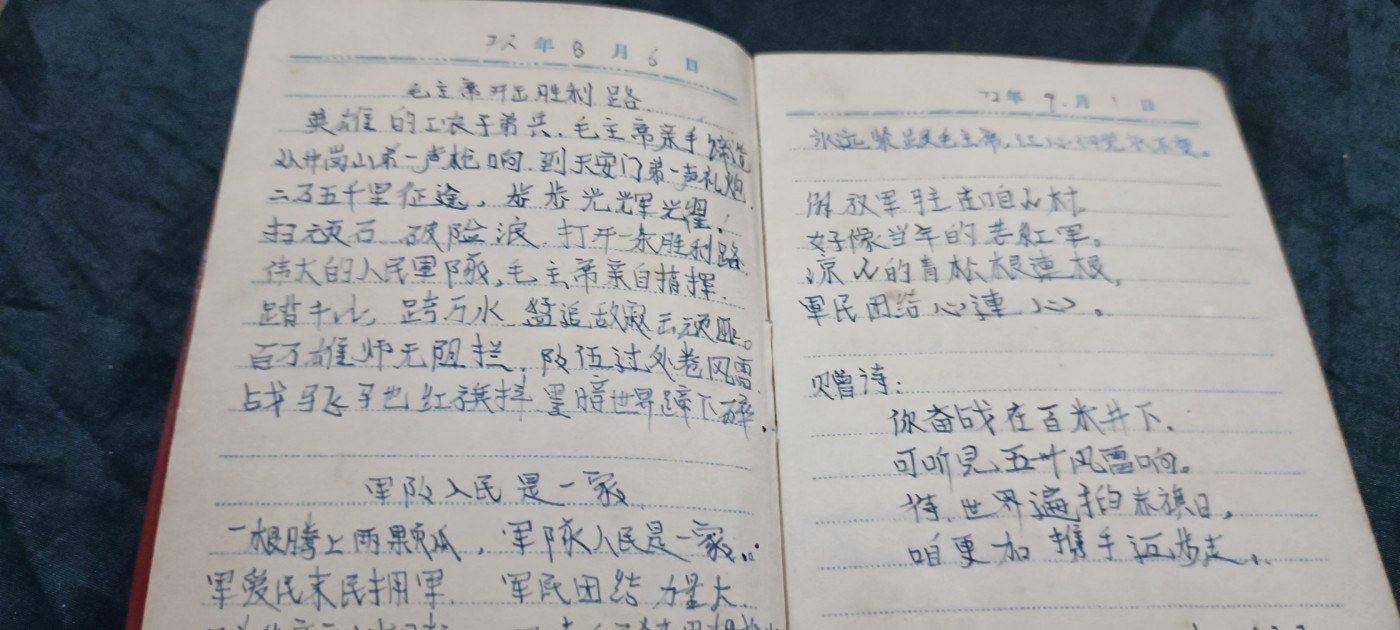 72 年 8 月 6 日
毛主席开出胜利路
英雄的工农子弟兵,毛主席亲手缔造
从井岗山第一声枪响,到天安门第一声礼炮
二万五千里征途,步步光辉光耀!
扫顽石 破险浪,打开一条胜利路
伟大的人民軍隊,毛主席亲自指挥.
踏千山,跨万水 猛追敌寇
百万雄师无阻拦,队伍过处卷风雷
战 红旗抖 黑暗世界蹄下碎.
军队人民是一家
一根腾上两颗瓜,军队人民是一家
军爱民来民拥军. 军民团结力量大
72 年 9 月 1 日
永远紧跟毛主席,红心
解放军驻在咱山村
好像当年的老红军。
凉山的青松根連根,
軍民团结心連心。
赠诗:
你奋战在百米井下.
可听见五叶风雷响。
待世界遍 赤旗日,
咱更加携手迈步走.